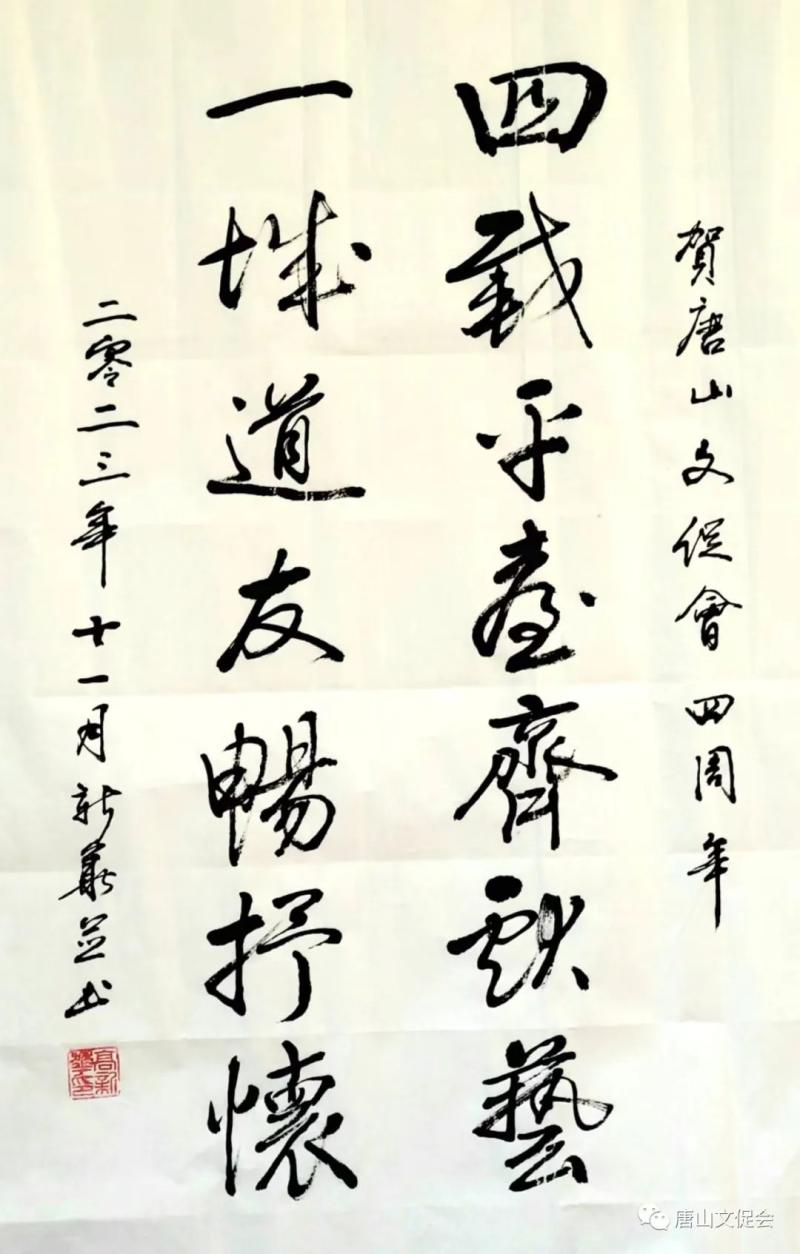 賀唐山文促會四周年
四載平臺齊獻藝
一城道友暢抒懷
二零二三年十一月新並书
高新
唐山文促会